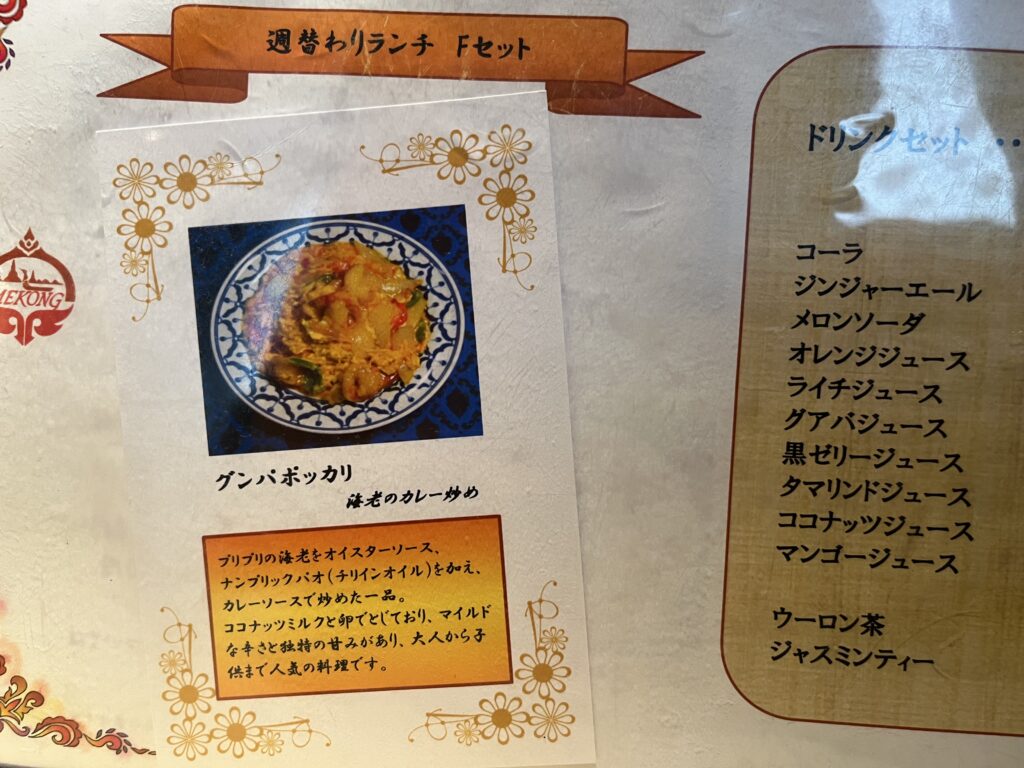 週替わりランチ Fセット
MEKONG
グンパポッカリ
海老のカレー炒め
プリプリの海老をオイスターソース、
ナンプリックパオ(チリインオイル)を加え、
カレーソースで炒めた一品。
ココナッツミルクと卵でとじており、マイルド
な辛さと独特の甘みがあり、大人から子
供まで人気の料理です。
ドリンクセット ・・
コーラ
ジンジャーエール
メロンソーダ
オレンジジュース
ライチジュース
グアバジュース
黒ゼリージュース
タマリンドジュース
ココナッツジュース
マンゴージュース
ウーロン茶
ジャスミンティー